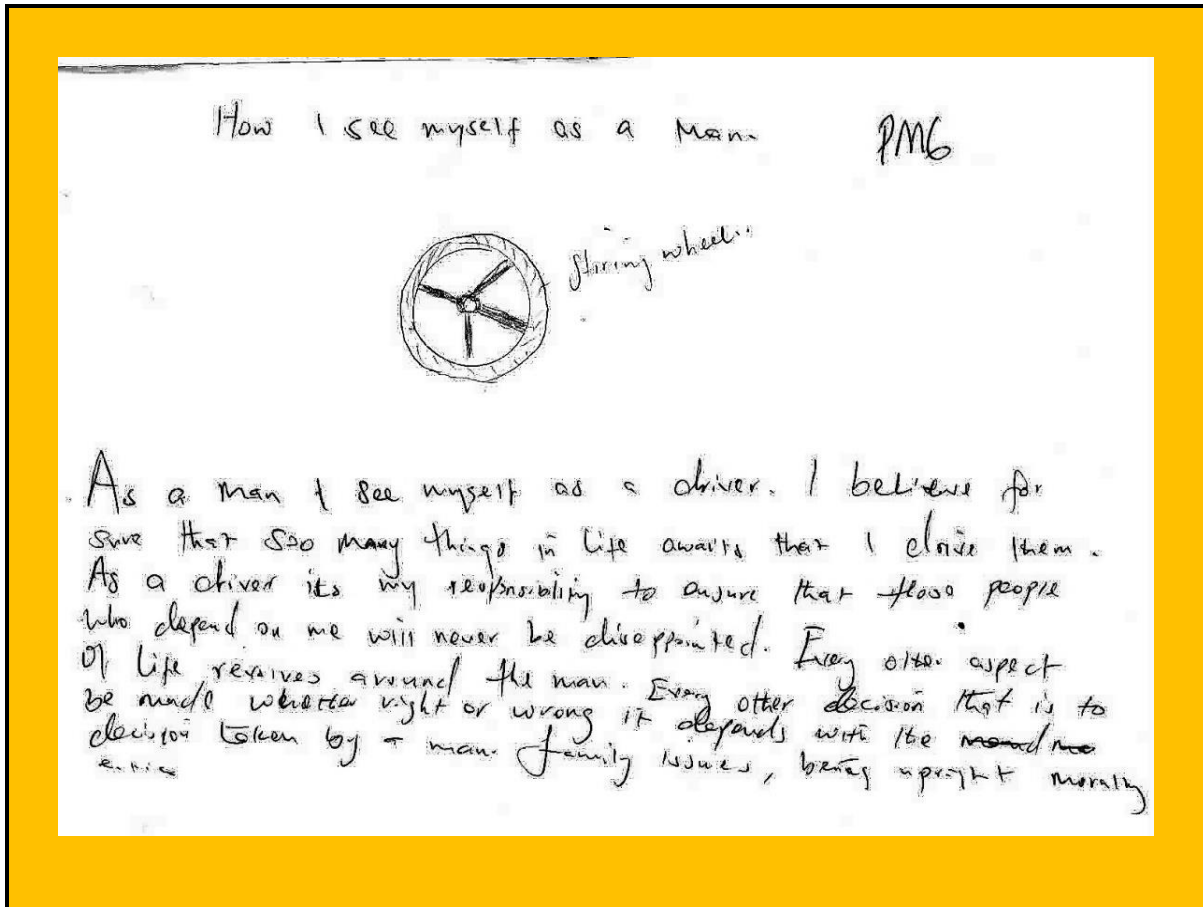 How I see myself as a Man.
PM6
Stiring wheel..
As a man I see myself as a driver. I believe for
sure that soo many things in life awaits that I drive them.
As a driver its my responsibility to ensure that those people
who depend on me will never be disappointed. Every other aspect
of life revolves around the man. Every other decision that is to
be made whether right or wrong it depends with the
decision taken by a man. family issues, being upright morally